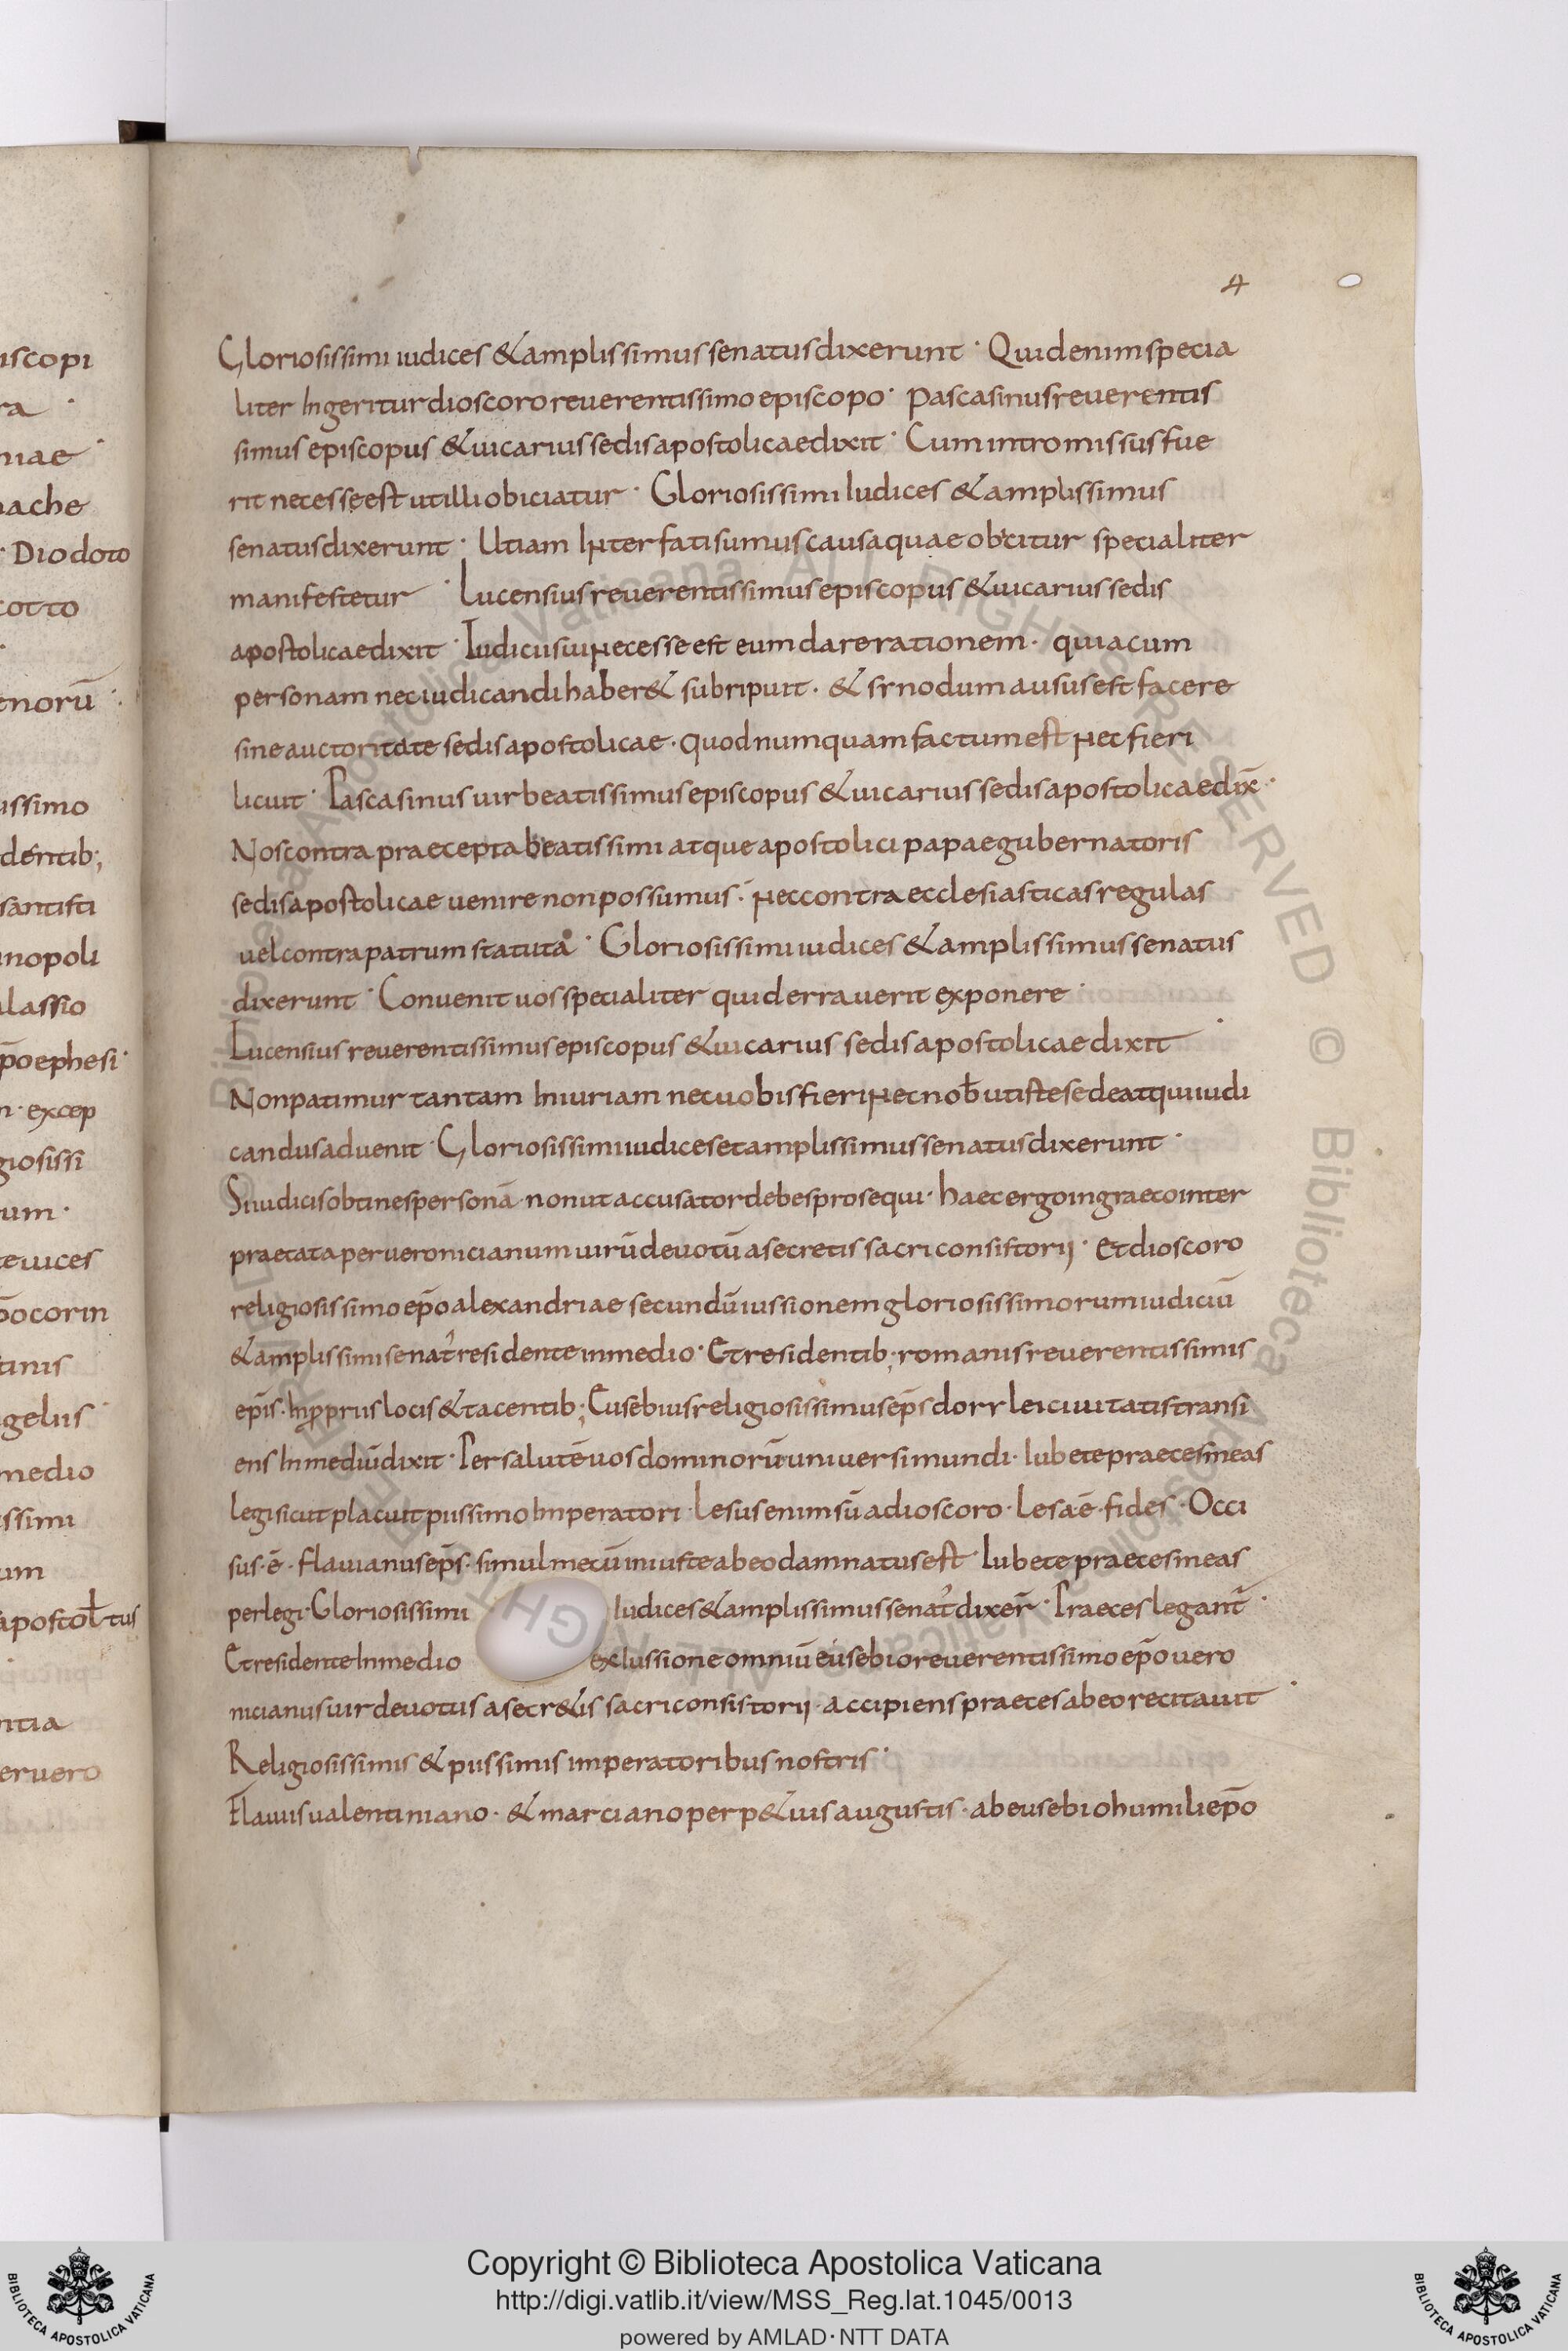 4
iscopi
ra ·
niae ·
nache
· Diodoto
cotto
enorū ·
issimo
dentib;
santisti
inopoli
alassio
p̄oephesi·
n· excep
giosissi
um·
te uices
p̄ocorin
tinis
gelus
medio
issimi
um
apostol̄tus
ntia
eruero
Gloriosissimi iudices & amplissimus senatus dixerunt · Quid enim specia
liter Ingeritur dioscoro reuerentissimo episcopo · Pascasinus reuerentis
simus episcopus & uicarius sedis apostolicae dixit · Cum intromissus fue
rit necesse est ut illi obiciatur · Gloriosissimi Iudices & amplissimus
senatus dixerunt · Ut iam INterfati sumus causa quae obicitur specialiter
manifestetur · Lucensius reuerentissimus episcopus & uicarius sedis
apostolicae dixit · Iudicii sui Necesse est eum dare rationem · quia cum
personam nec iudicandi haber& subripuit · & synodum ausus est facere
sine auctoritate sedis apostolicae · quod numquam factum est Nec fieri
licuit · Pascasinus uir beatissimus episcopus & uicarius sedis apostolicae dix̄ ·
Nos contra praecepta beatissimi atque apostolici papae gubernatoris
sedis apostolicae uenire non possumus · Nec contra ecclesiasticas regulas
uel contra patrum statuta · Gloriosissimi iudices & amplissimus senatus
dixerunt · Conuenit uos specialiter quid errauerit exponere ·
Lucensius reuerentissimus episcopus & uicarius sedis apostolicae dixit ·
Non patimur tantam Iniuriam nec uobis fieri Nec nob̄ ut iste sedeat qui iudi
candus aduenit · Gloriosissimi iudices et amplissimus senatus dixerunt ·
Si iudicis obtines personā non ut accusator debes prosequi · haec ergo in graeco inter
praetata per ueronicianum uirū deuotū a secretis sacri consistorii · Et dioscoro
religiosissimo ep̄o alexandriae secundū iussionem gloriosissimorum iudiciū
& amplissimi senat' residente in medio · Et residentib; romanis reuerentissimis
ep̄is · In p̱priis locis & tacentib; Eusebius religiosissimus ep̄s dorylei ciuitatis transi
ens In mediū dixit · Per salutē uos dominorū uniuersi mundi · Iubete praeces meas
legi sicut placuit piissimo Imperatori · Lesus enim sū a dioscoro · Lesa ē fides · Occi
sus · ē · flauianus ep̄s · simul mecū iniuste ab eo damnatus est · Iubete praeces meas
perlegi · Gloriosissimi Iudices & amplissimus senat' dixer̄ · Praeces legant̄ ·
Et residente In medio ex Iussione omniū eusebio reuerentissimo ep̄o uero
nicianus uir deuotus a secr&is sacri consistorii · accipiens praeces ab eo recitauit ·
Religiosissimis & piissimis imperatoribus nostris ·
Flauiis ualentiniano · & marciano perp&uis augustis · ab eusebio humili ep̄o
Copyright © Biblioteca Apostolica Vaticana
http://digi.vatlib.it/view/MSS_Reg.lat.1045/0013
powered by AMLAD·NTT DATA
BIBLIOTECA APOSTOLICA VATICANA
BIBLIOTECA APOSTOLICA VATICANA